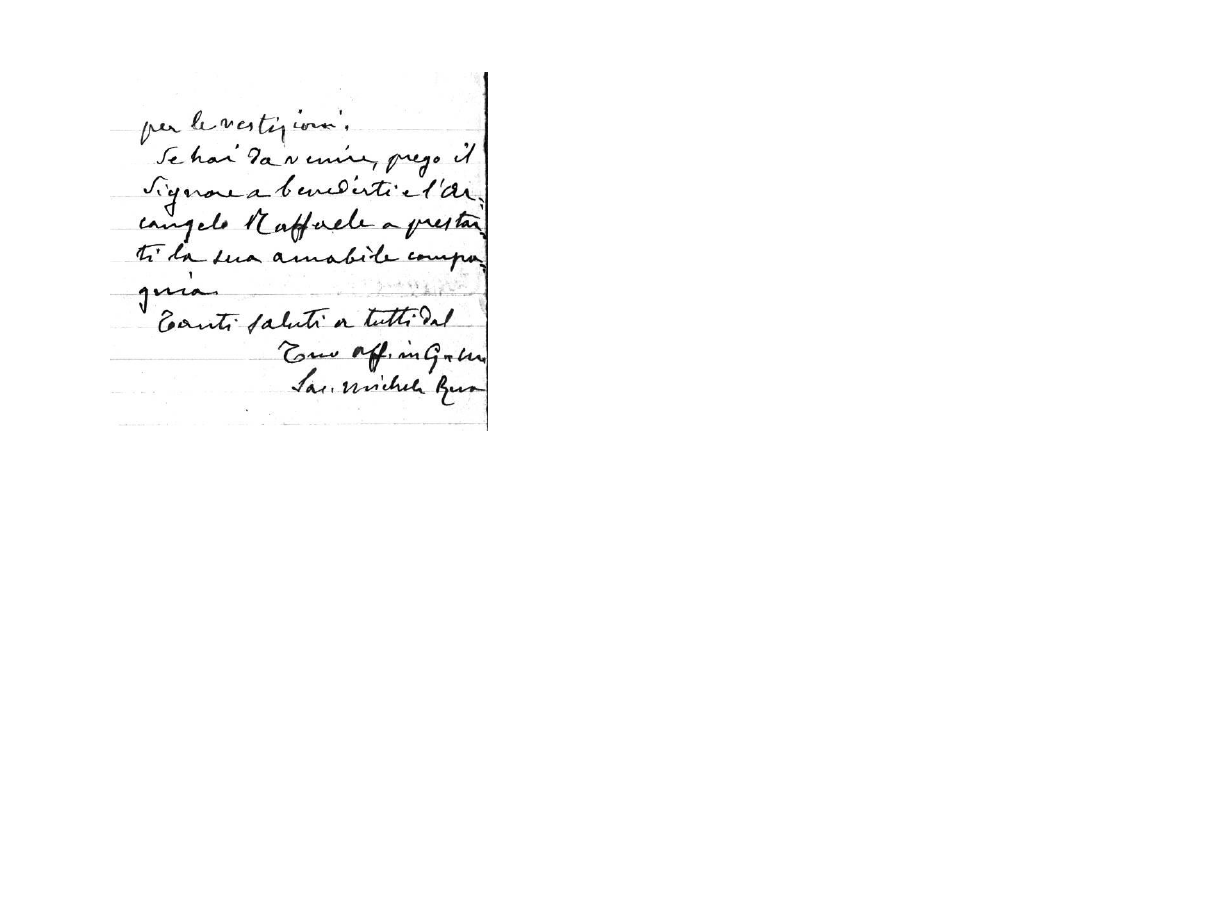 per le vestizioni.
Se hai da venire, prego il
Signore a benedirti e l'Ar-
cangelo Raffaele a prestar-
ti la sua amabile compa-
gnia.
Tanti saluti a tutti dal
Tuo aff. in G. e M.
Sac. Michele Rua